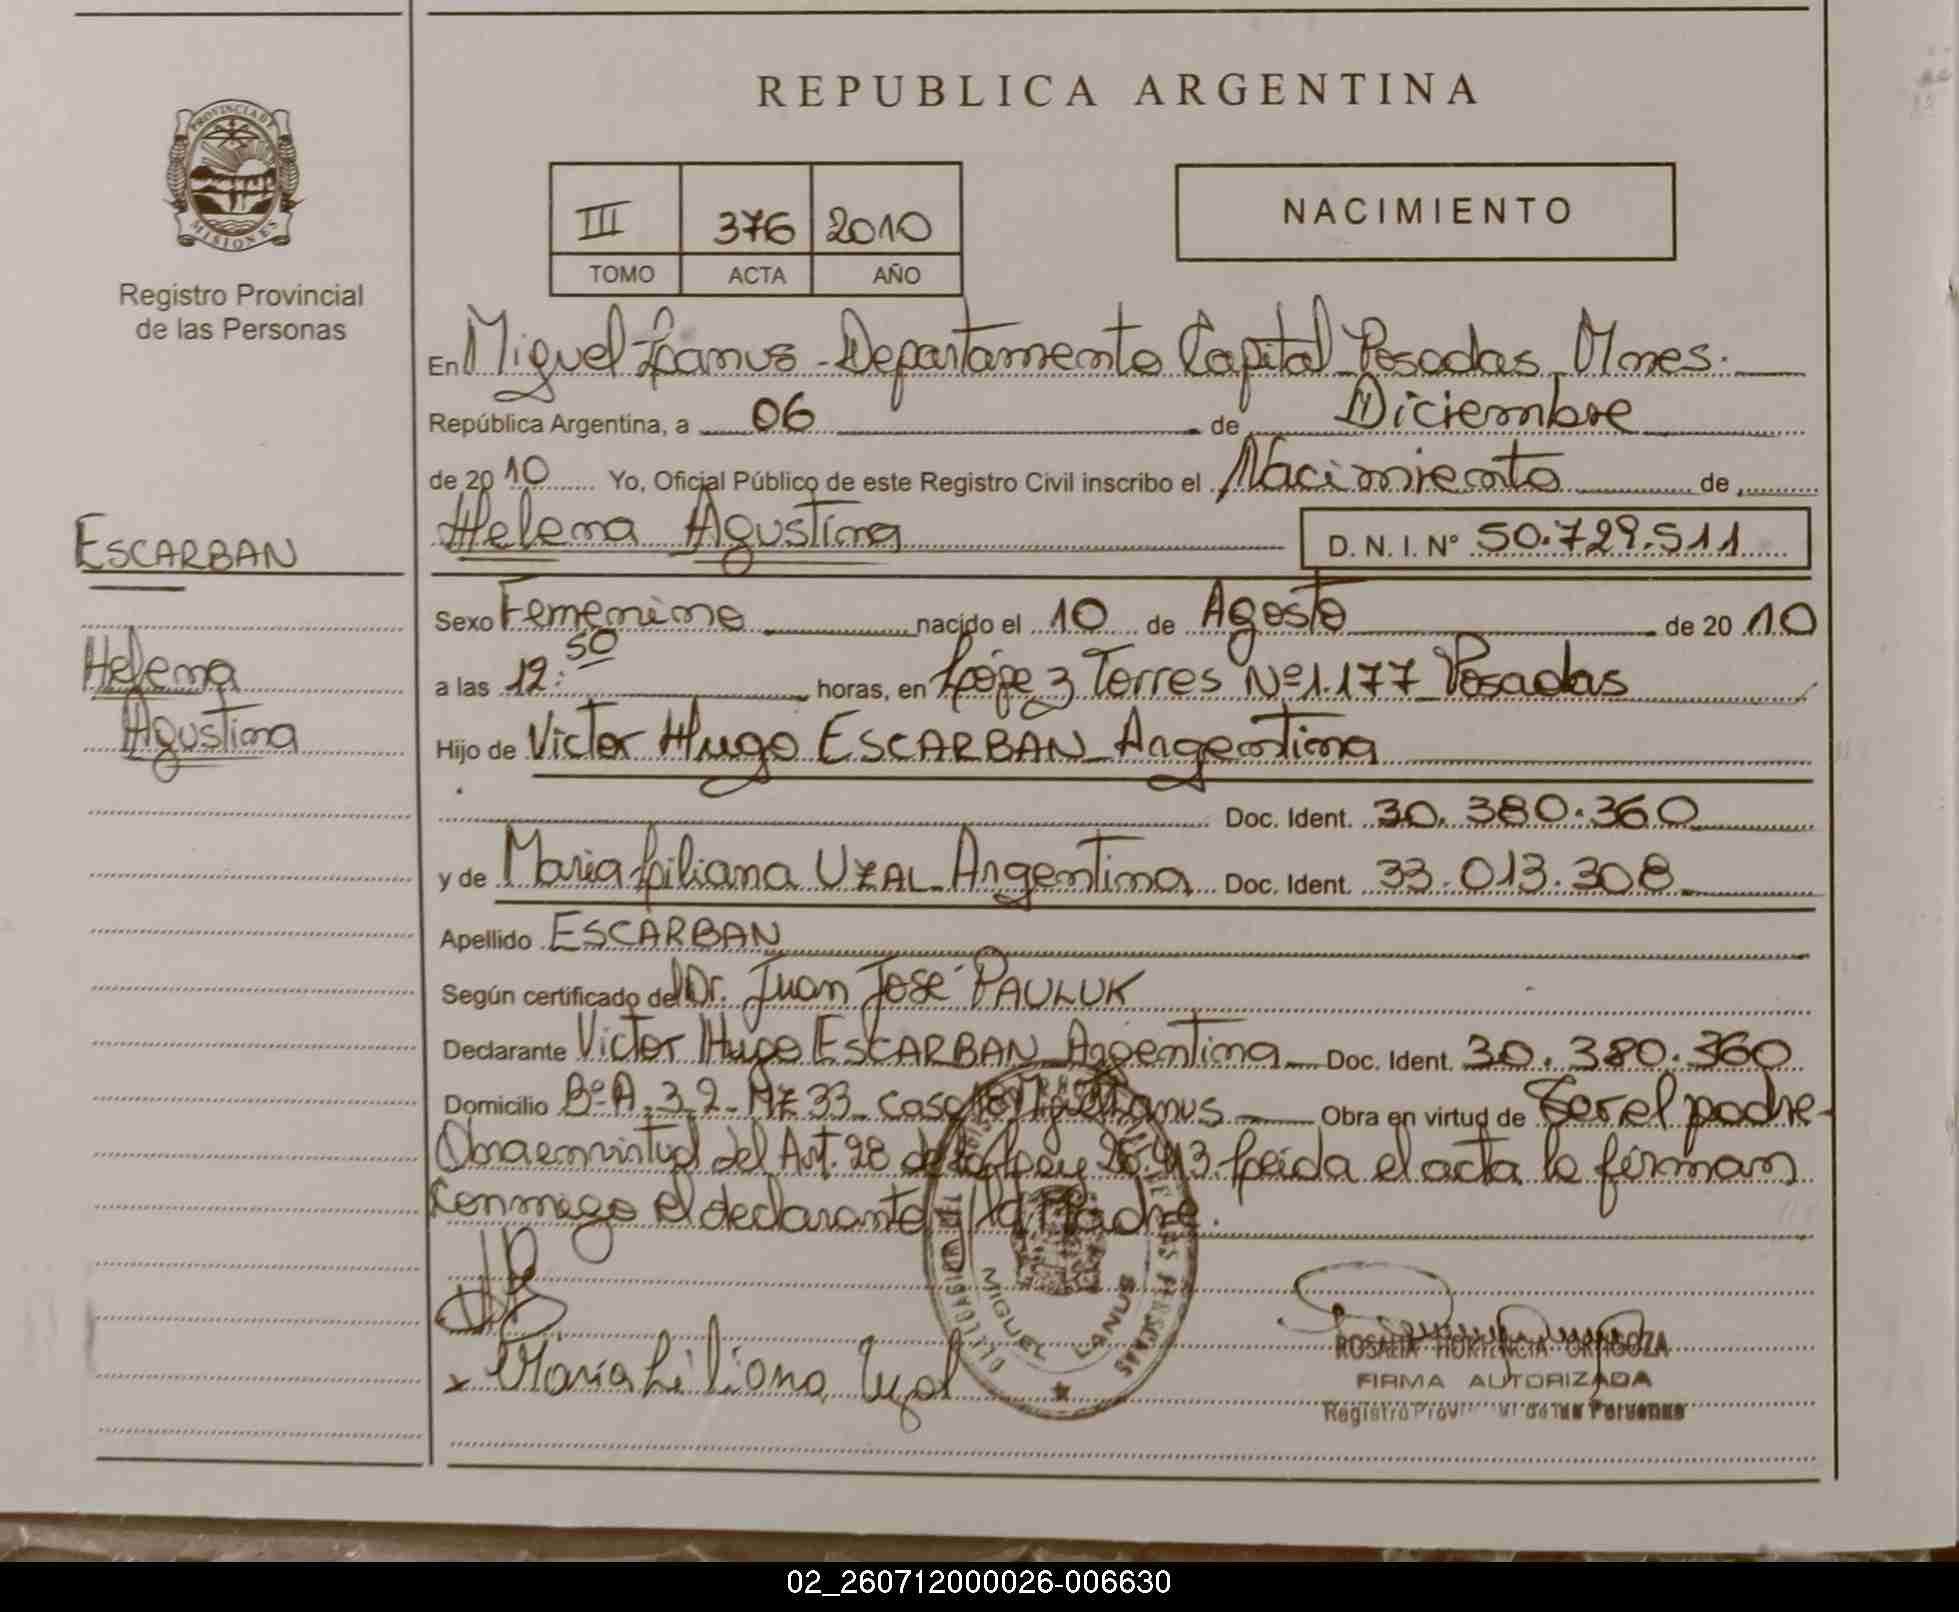 REPUBLICA ARGENTINA
PROVINCIA DE
MISIONES
Registro Provincial
de las Personas
III 376 2010
TOMO ACTA AÑO
NACIMIENTO
En Miguel Lanus - Departamento Capital Posadas Mnes.
República Argentina, a 06 de Diciembre
de 2010 Yo, Oficial Público de este Registro Civil inscribo el Nacimiento de
ESCARBAN
Helena Agustina D. N. I. Nº 50.729.511
Sexo Femenino nacido el 10 de Agosto de 2010
Helena
Agustina
a las 12:50 horas, en López Torres Nº 1.177 Posadas
Hijo de Victor Hugo ESCARBAN Argentina
Doc. Ident. 30.380.360
y de Maria Liliana UZAL Argentina Doc. Ident. 33.013.308
Apellido ESCARBAN
Según certificado del Dr. Juan José PAULUK
Declarante Victor Hugo ESCARBAN Argentina Doc. Ident. 30.380.360
Domicilio Bº A.3.2 - Mz 33 casa Miguel Lanus Obra en virtud de Ser el padre
Obra en virtud del Art. 28 de la Ley 26.413. Leida el acta la firman
Conmigo el declarante y la Madre.
x Maria Liliana Uzal
MIGUEL LANUS
ROSALIA HORTENCIA
FIRMA AUTORIZADA
Registro de las Personas
02_260712000026-006630